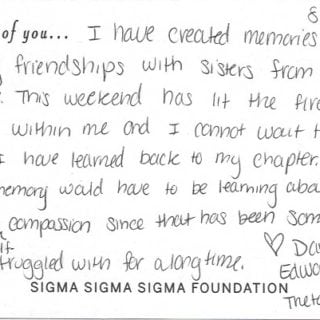 of you... I have created memories
friendships with sisters from
This weekend has lit the fire
within me and I cannot wait t
I have learned back to my chapter.
memory would have to be learning aba
compassion since that has been som
struggled with for a long time.
♡ Da
Edwa
Theta
SIGMA SIGMA SIGMA FOUNDATION